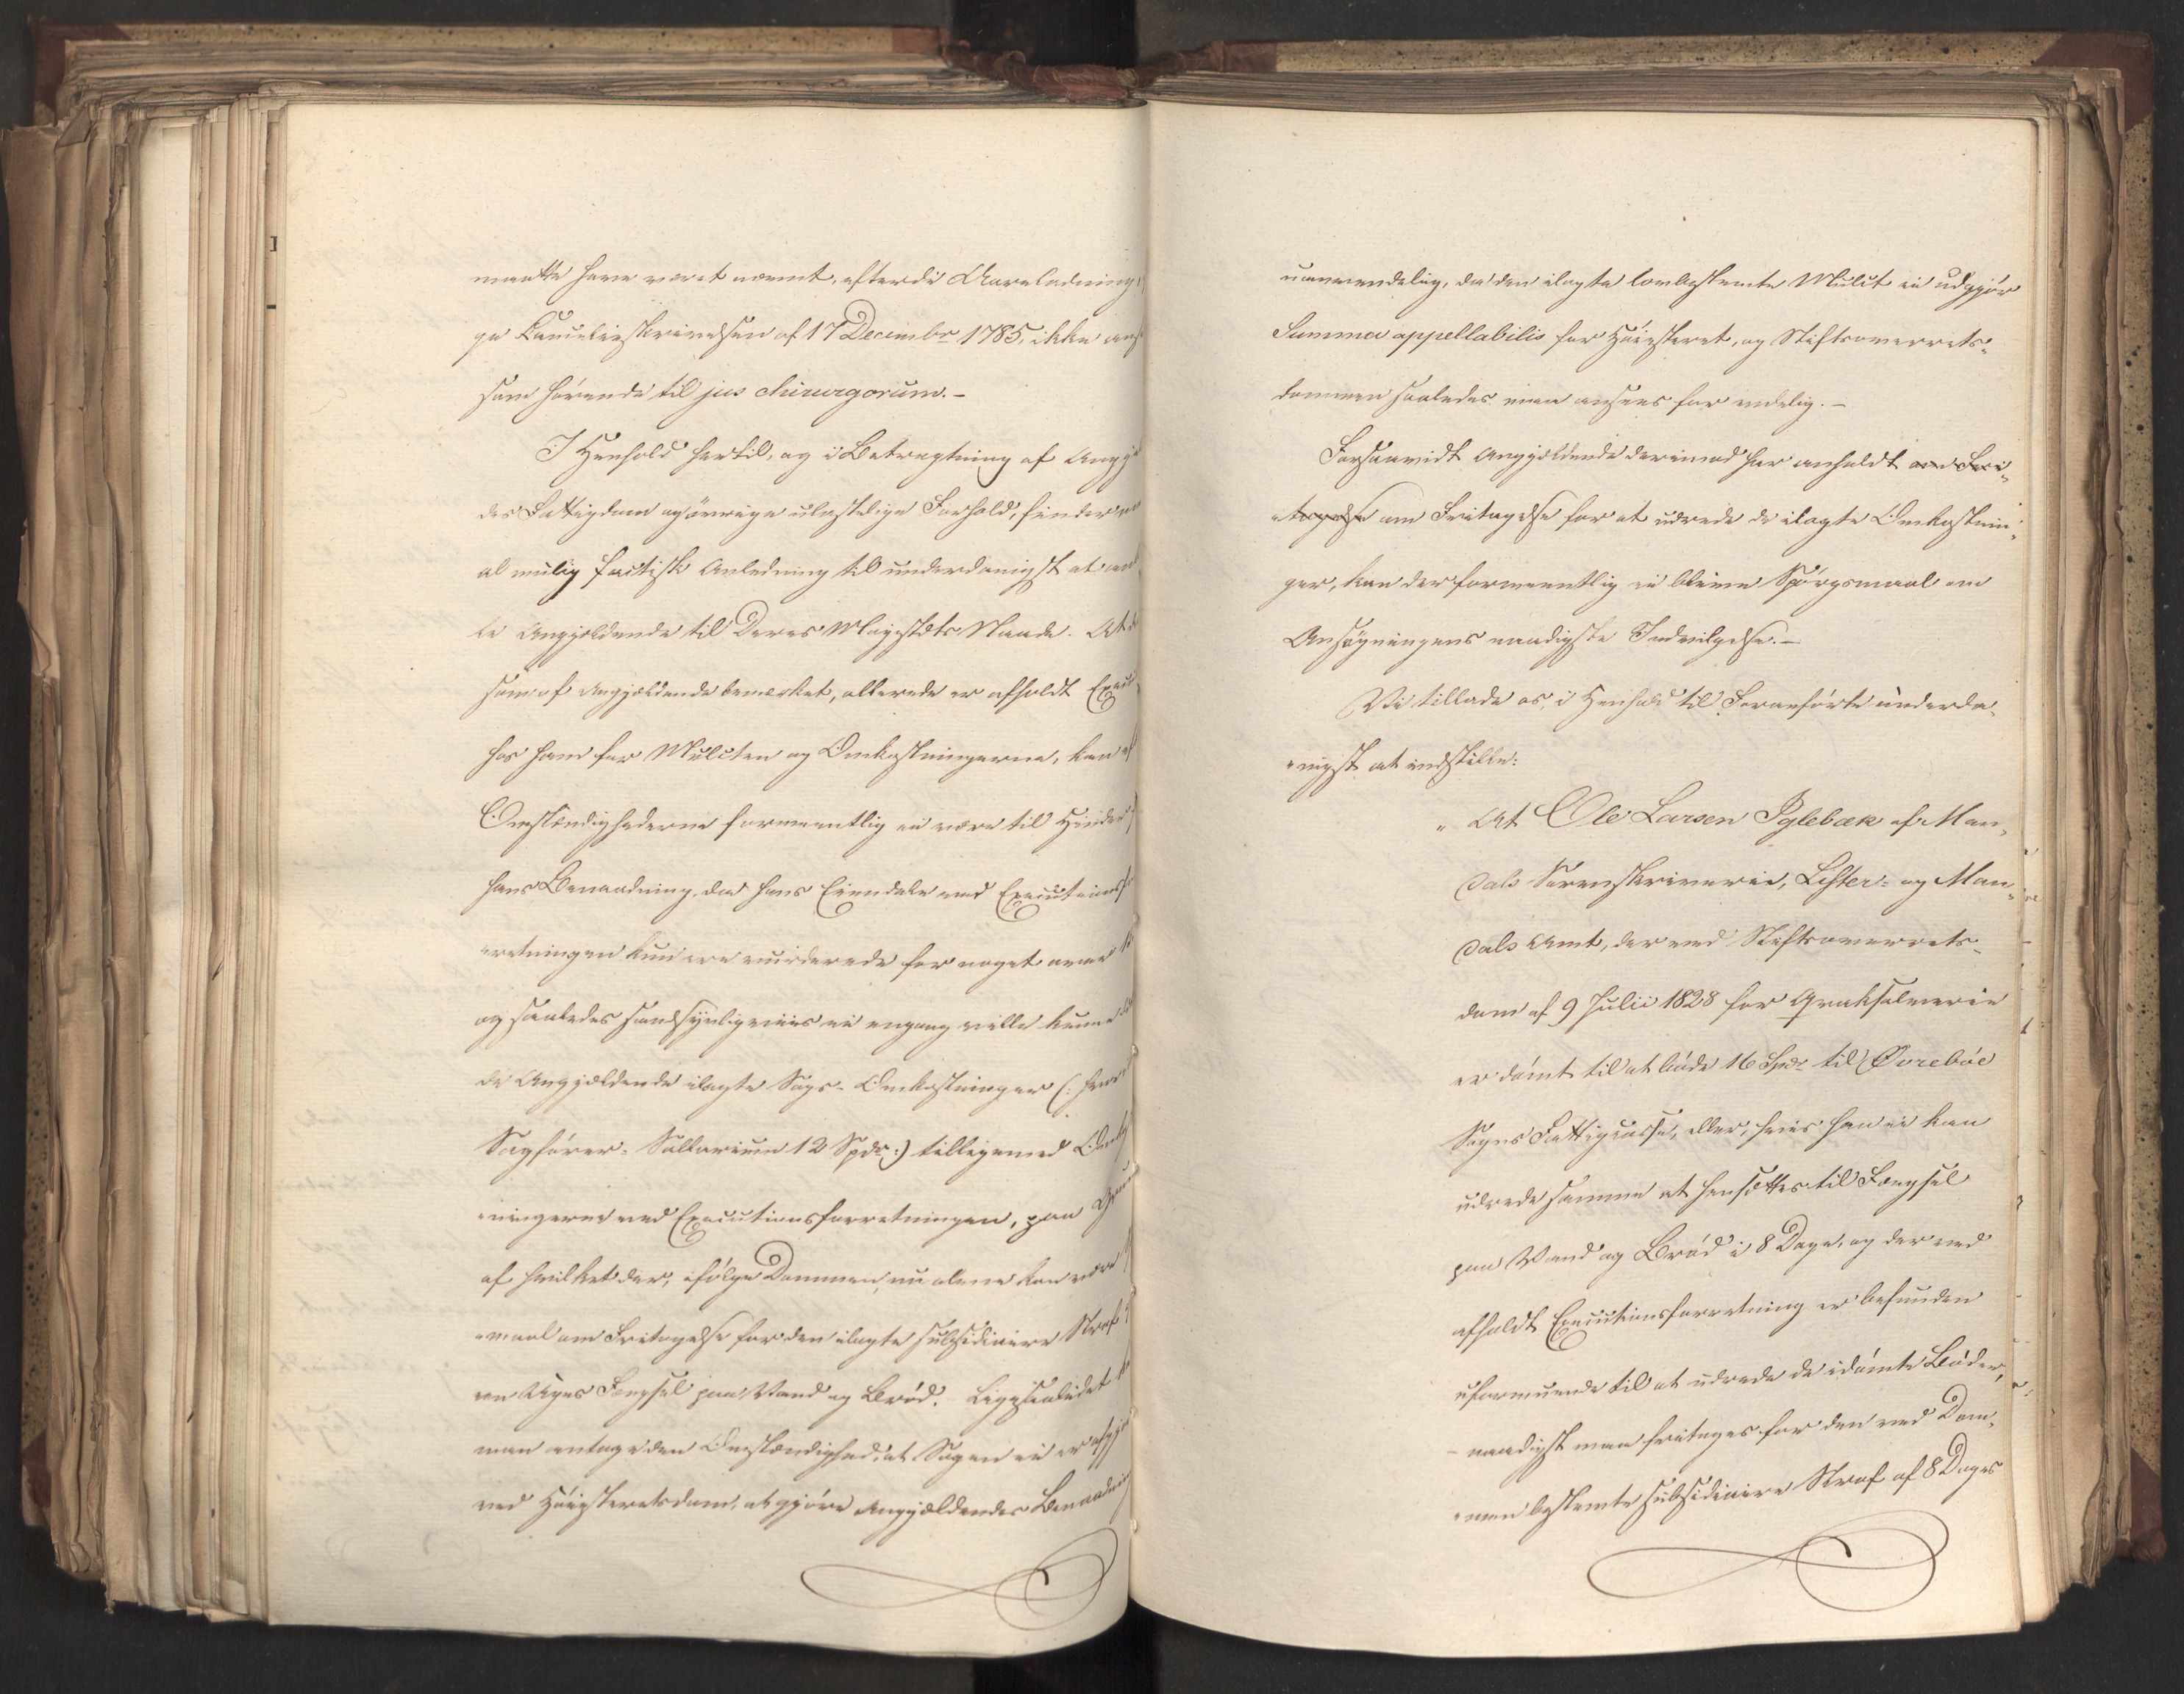 maatte have været nævnt, efterdi Aareladning
ge Cancelieskrivelsen af 17 Decembr 1785, ikke ans
som hørende til jus chirurgorum.-
I Henhold hertil, og i Betragtning af Angjæ
des Fattigdom og øvrige ulastelige Forhold, finder
al mulig factisk Anledning til underdanigst at
le Angjældende til Deres Majestæts Naade. At
som af Angjældende bemærket, allerede er afholdt Execu
hos ham for Mulcten og Omkostningerne, kan
Omstændighederne formeentlig ei være til Hinder
hans Benaadning, da hans Eiendele ved Executionsfo
rretningen kun ere vurderede for noget over
og saaledes sandsynligviis ei engang ville kunne
de Angjældende ilagte Sags-Omkostninger (:
Sagfører-Sallarium 12 Spdr:) tilligemed Omkost
ningerne ved Executionsforretningen, paa Grund
af hvilket der, ifølge Dommen, nu alene kan være
maal om Fritagelse for den ilagte subsidiaire Straf
Fængsel paa Vand og Brød. Ligesaalidet
man antage den Omstændighed, at Sagen ei er afgjo
ved Høiesteretsdom, at gjøre Angjældendes Benaadning
uanvendelig, da den ilagte lovbestemte Mulct ei udgjør
Summa appellabilis for Høiesteret, og Stiftsoverrets-
dommen saaledes maa ansees for endelig.-
Forsaavidt Angjældende derimod har anholdt om Fri-
tagelse om Fritagelse for at udrede de ilagte Omkostnin-
ger, kan der formeentlig ei blive Spørgsmaal om
Ansøgningens naadigste Indvilgelse.-
Vi tillade os i Henhold til Foranførte underda-
nigst at indstille:
"At Ole Larsen Iglebæk af Man-
dals Sorenskriverie, Lister- og Man-
dals Amt, der ved Stiftsoverrets-
dom af 9 Julii 1828 for Qvaksalverie
er dømt til at bøde 16 Spdr til Øvrebøe
Sogns Fattigcasse, eller, hvis han ei kan
udrede samme at hensættes til Fængsel
paa Vand og Brød i 8 Dage, og der ved
afholdt Executionsforretning er befunden
uformuende til at udrede de idømte Bøder,
naadigst maa fritages for den ved Dom-
men bestemte subsidiaire Straf af 8 Dages